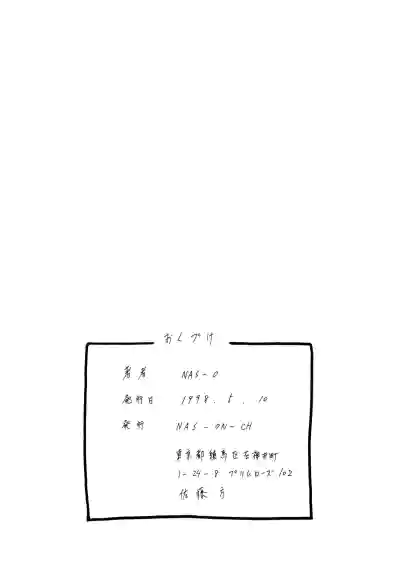 おくづけ
著者 NAS-O
発行日 1998. 5. 10
発行 NAS-ON-CH
東京都練馬区石神井町
1-24-8 プリムローズ102
佐藤方